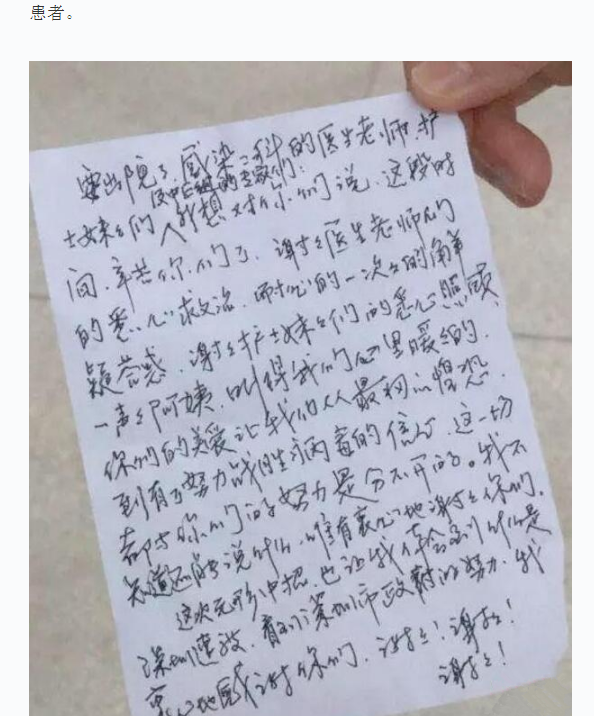 患者。
要出院了,感染二科的医生老师,护
及中医组的专家们,
士妹妹们,我想对你们说,这段时
间,辛苦你们了,谢谢医生老师们
的悉心救治,耐心的一次次的解
疑答惑,谢谢护士妹妹们的悉心照顾
一声声阿姨,叫得我们心里暖暖的,
你们的关爱让我们从最初的惶恐
到有了努力战胜病毒的信心,这一切
都与你们的努力是分不开的。我不
知道还能说什么,唯有衷心地谢谢你们。
这次无形中把,也让我体会到什么是
深圳速度,看到深圳市政府的努力,我
衷心地感谢你们,谢谢!谢谢!
谢谢!